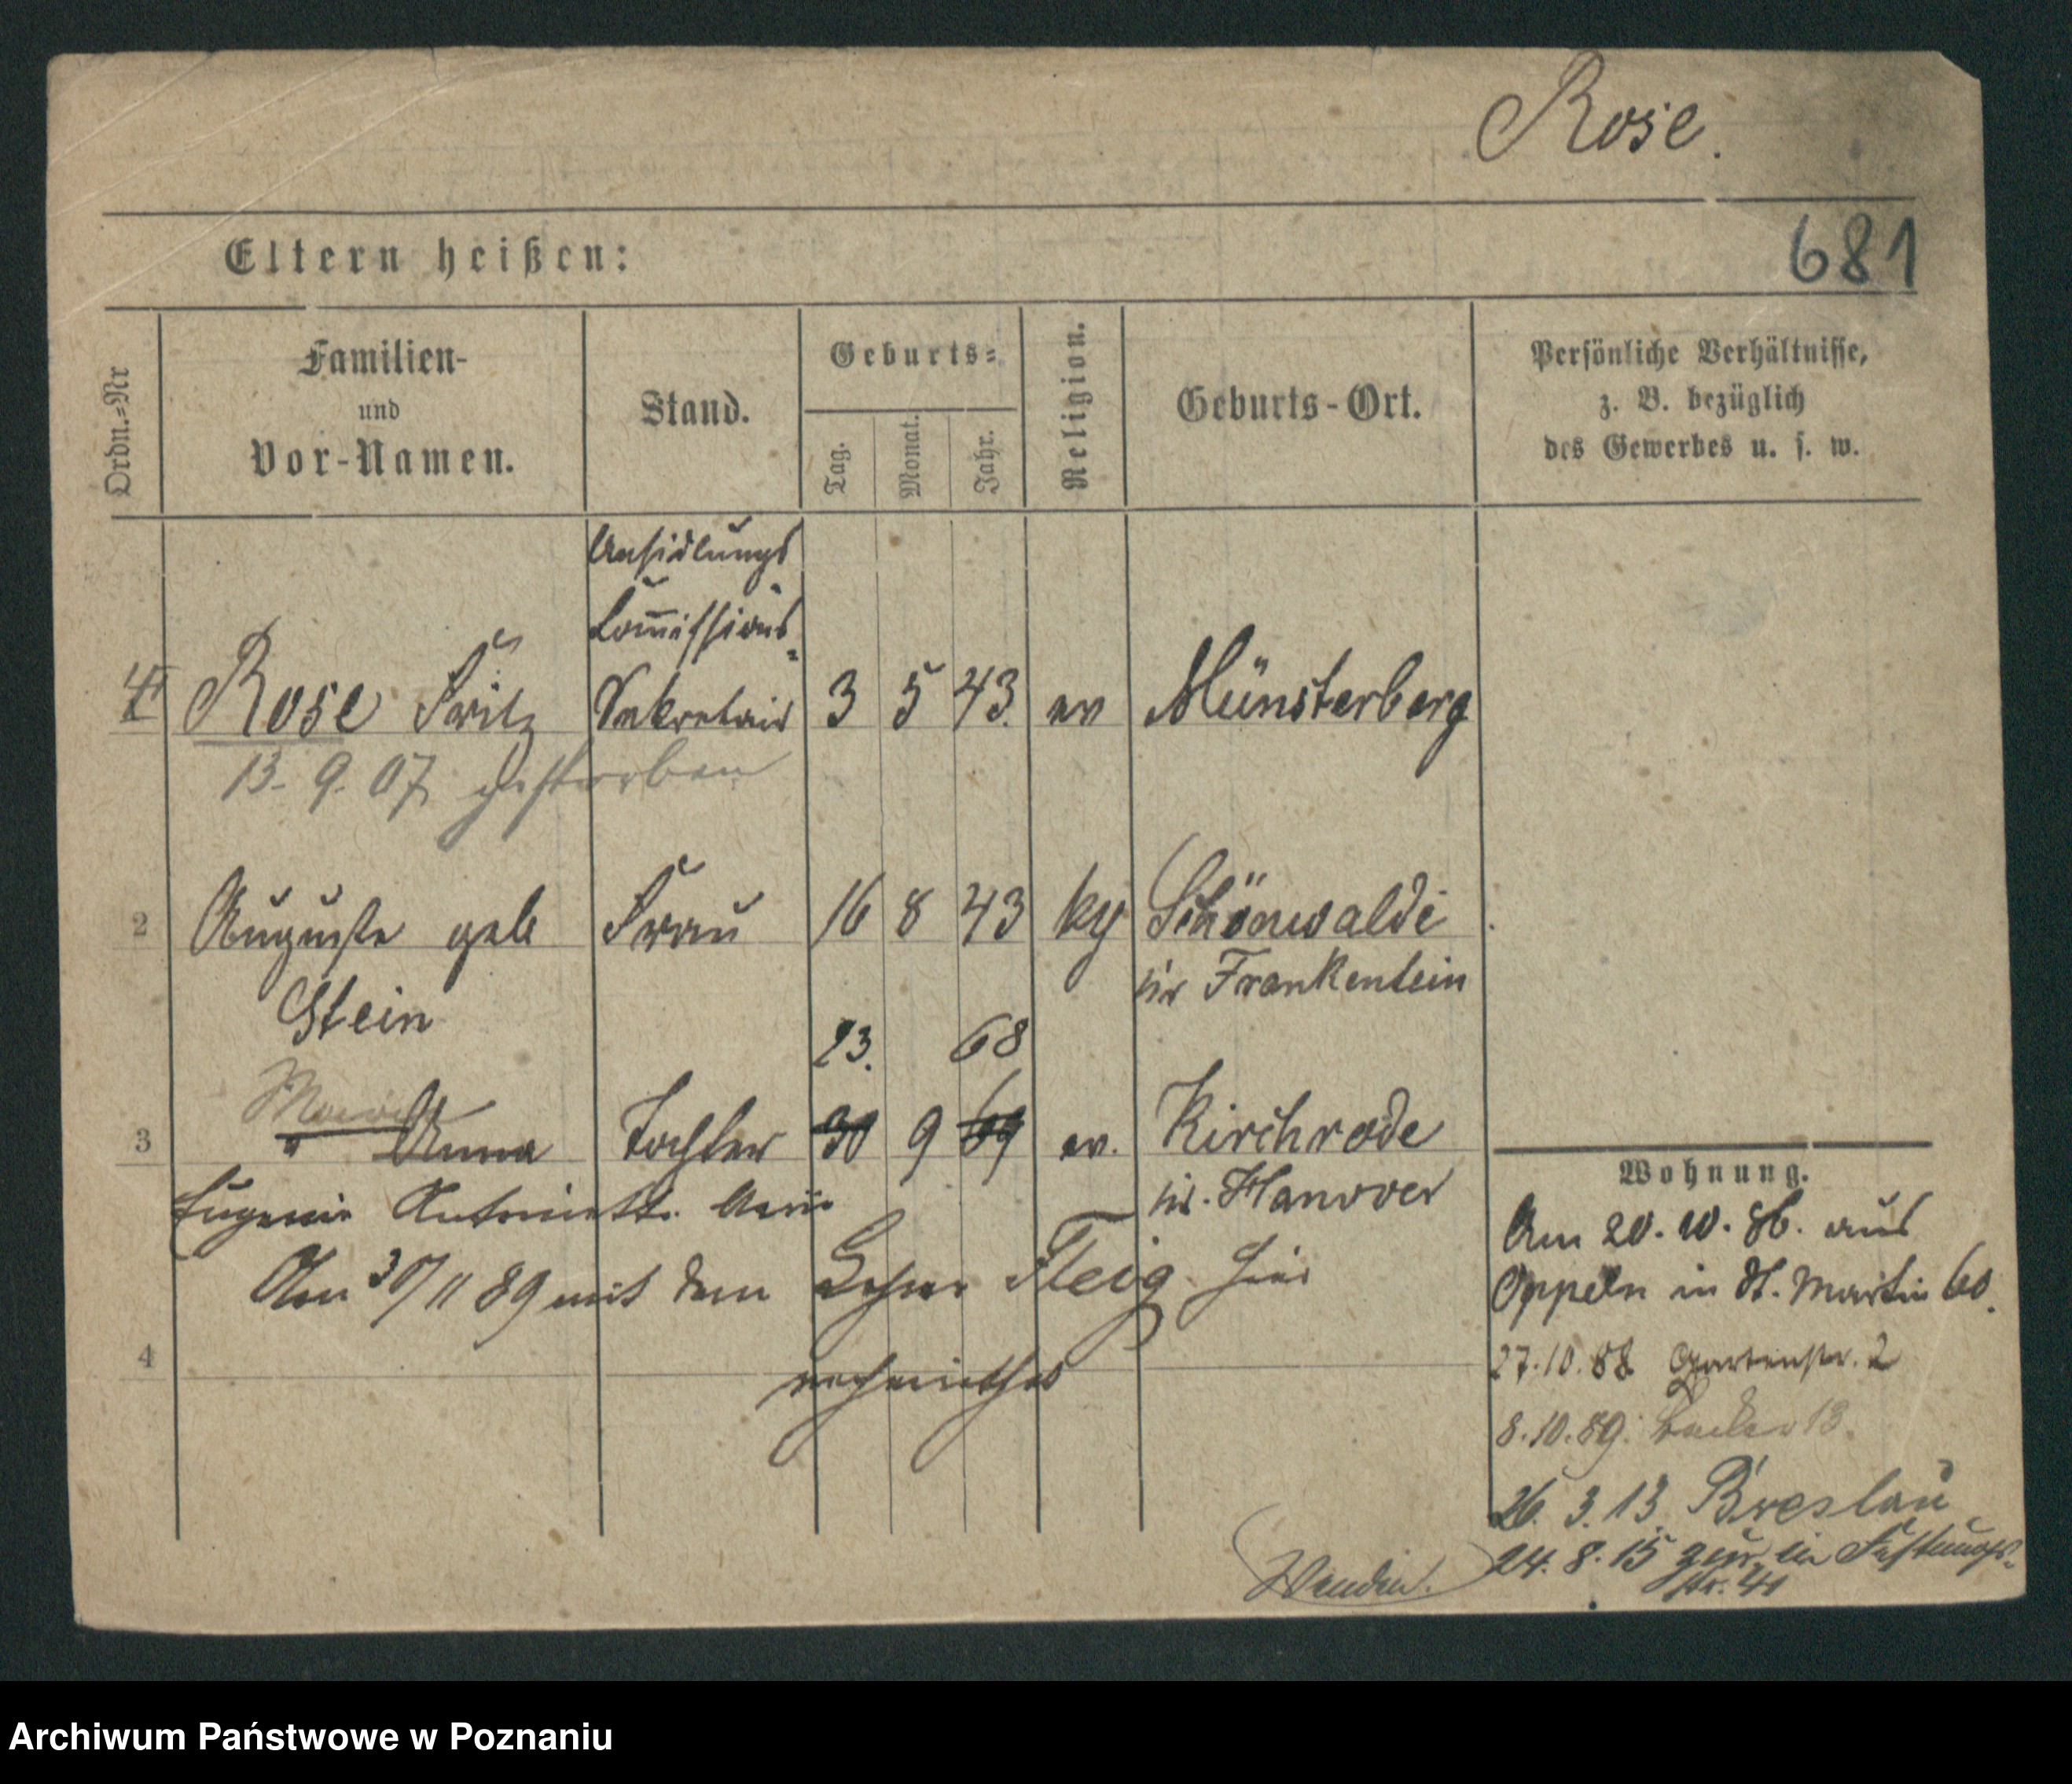 Rose.
681
Eltern heißen:
Ordn.=Nr
Familien-
und
Vor-Namen.
Stand.
Geburts=
Tag.
Monat.
Jahr.
Religion.
Geburts-Ort.
Persönliche Verhältnisse,
z. B. bezüglich
des Gewerbes u. s. w.
Ansidlungs
Commissions-
Rose Fritz Sekretair 3 5 43. ev Münsterberg
13. 9. 07 gestorben
2 Auguste geb Frau 16 8 43 Schönwalde
Stein Frankentein
23. 68
3 " Anna Tochter 30 9 69 ev. Kirchrode
Eugenie Antoinette Hanover
Am 30/11 89 mit dem Lehrer Fleig hier
4 verheirathet
Wohnung.
Am 20. 10. 86. aus
Oppeln in St. Martin 60.
27.10.88 Gartenstr. 2
8.10.89. 13.
26. 3. 13 Breslau
24. 8. 15 zur. in Festungs-
str. 41